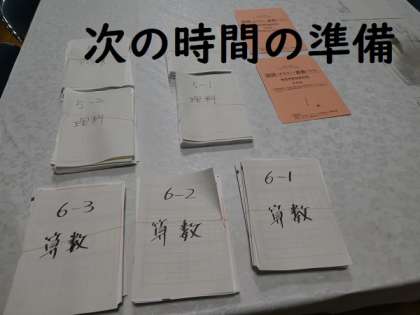 次の時間の準備
5-2
理科
5-1
理科
6-3
算数
6-2
算数
6-1
算数